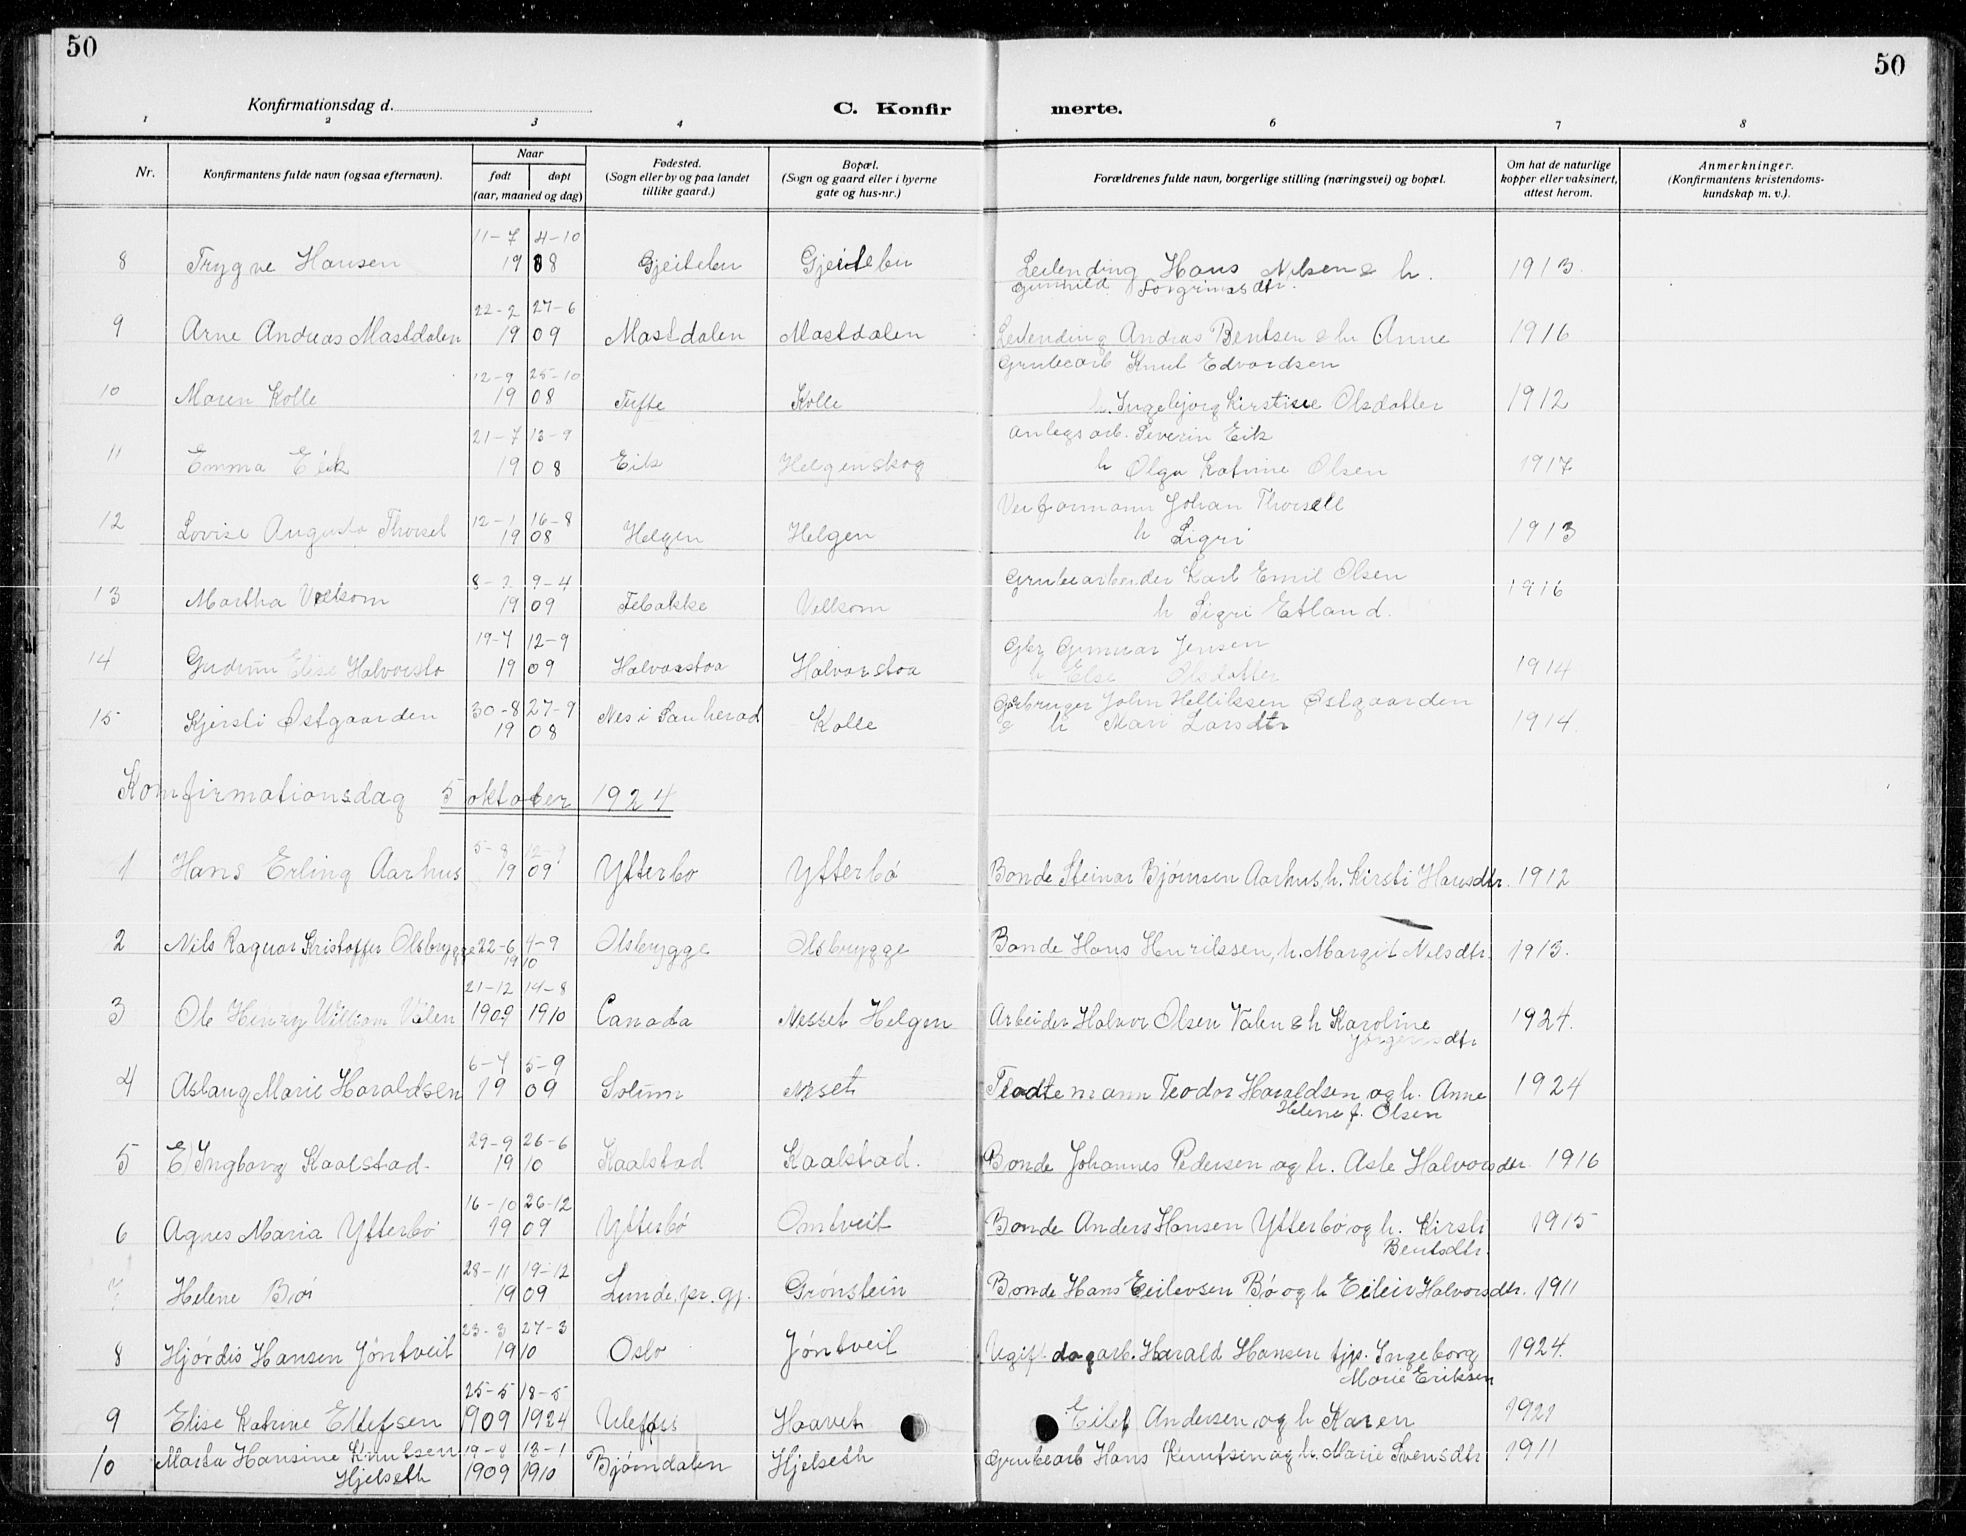 50
50
Konfirmationsdag d.
C. Konfir merte.
1 2 3 4 6 7 8
Nr. Konfirmantens fulde navn (ogsaa efternavn). Naar født døpt (aar, maaned og dag) Fødested. (Sogn eller by og paa landet tillike gaard.) Bopæl. (Sogn og gaard eller i byerne gate og hus-nr.) Forældrenes fulde navn, borgerlige stilling (næringsvei) og bopæl. Om hat de naturlige kopper eller vaksinert, attest herom. Anmerkninger. (Konfirmantens kristendoms-kundskap m. v.).
11-7 4-10
8 Trygve Hansen 19 08 Gjeitebu Gjeitebu Leilending Hans Nilsen & h. 1913.
Gunhild Torgrimsdtr.
22-2 27-6
9 Arne Andreas Mastdalen 19 09 Mastdalen Mastdalen Leilending Andreas Bentsen & h Anne 1916
12-9 25-10 Grubearb Knut Edvardsen
10 Maren Kolle 19 08 Tufte Kolle h. Ingebjørg Kirstine Olsdatter 1912
21-7 13-9 Anlegsarb. Severin Eik
11 Emma Eik 19 08 Eik Helgenskog h Olga Katrine Olsen 1917
12-1 16-8 Johan Thorsell
12 Lovise Augusta Thorsel 19 08 Helgen Helgen h Sigri 1913
8-2 9-4 Grubearbeider Karl Emil Olsen
13 Martha Velkom 19 09 Tebakke Velkom h Sigri Etland. 1916
19-7 12-9 Gbr Gunnar Jensen
14 Gudrun Elise Halvorsto 19 09 Halvorstoa Halvorstoa h Else Olsdatter 1914
30-8 27-9 Gbruger John Helliksen Østgaarden
15 Kjersti Østgaarden 19 08 Nes i Sauherad Kolle & h Mari Larsdtr 1914.
Konfirmationsdag 5 oktober 1924
5-8 12-9
1 Hans Erling Aarhus 19 09 Ytterbø Ytterbø Bonde Steinar Bjørnsen Aarhus h. Kirsti Hansdtr. 1912
2 Nils Ragnar Kristoffer Olsbrygge 22-6 4-9 Olsbrygge Olsbrygge Bonde Hans Henrikssen, h. Margit Nilsdtr. 1913.
19 10
21-12 14-8
3 Ole Henry William Valen 1909 1910 Canada Nesset Helgen Arbeider Halvor Olsen Valen & h Karoline 1924.
Jørgensdtr
6-7 5-9
4 Aslaug Marie Haraldsen 19 09 Solum Neset Flødtemann Teodor Haraldsen og h. Anne 1924
Helene f. Olsen
29-9 26-6
5 E Ingborg Kaalstad. 19 10 Kaalstad Kaalstad. Bonde Johannes Pedersen og h. Asle Halvorsdtr. 1916
16-10 26-12
6 Agnes Maria Ytterbø 19 09 Ytterbø Omtveit Bonde Anders Hansen Ytterbø og h. Kirsti 1915
Bentsdtr.
28-11 19-12
7 Helene Bø 19 09 Lunde, pr. gj. Grønstein Bonde Hans Eilevsen Bø og h Eileiv Halvorsdtr. 1911
23-3 27-3
8 Hjørdis Hansen Jøntveit 19 10 Oslo Jøntveit Ugift dagarb. Harald Hansen tjp. Ingeborg 1924.
Marie Eriksen
25-5 18-5
9 Elise Katrine Ellefsen 1909 1924 Ulefoss Haavet Eilef Andersen og h Karen 1921
19-8 13-1
10 Marta Hansine Knutsen 1909 1910 Bjørndalen Hjelseth Grubearb Hans Knutsen og h. Marie Svensdtr 1911
Hjelseth